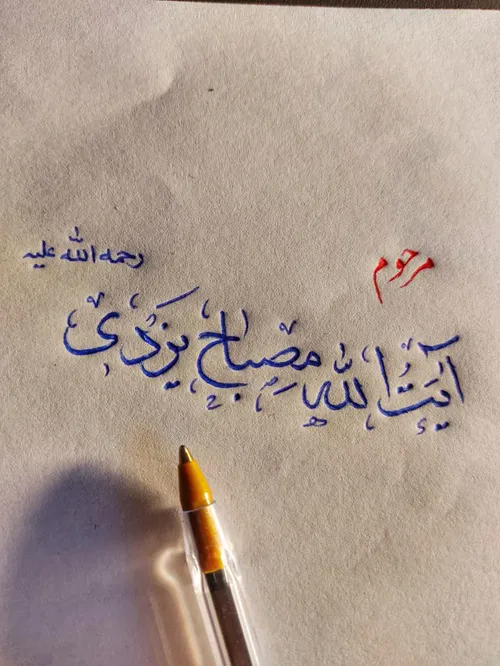 مرحوم
رحمه الله علیه
آیت الله مصباح یزدی